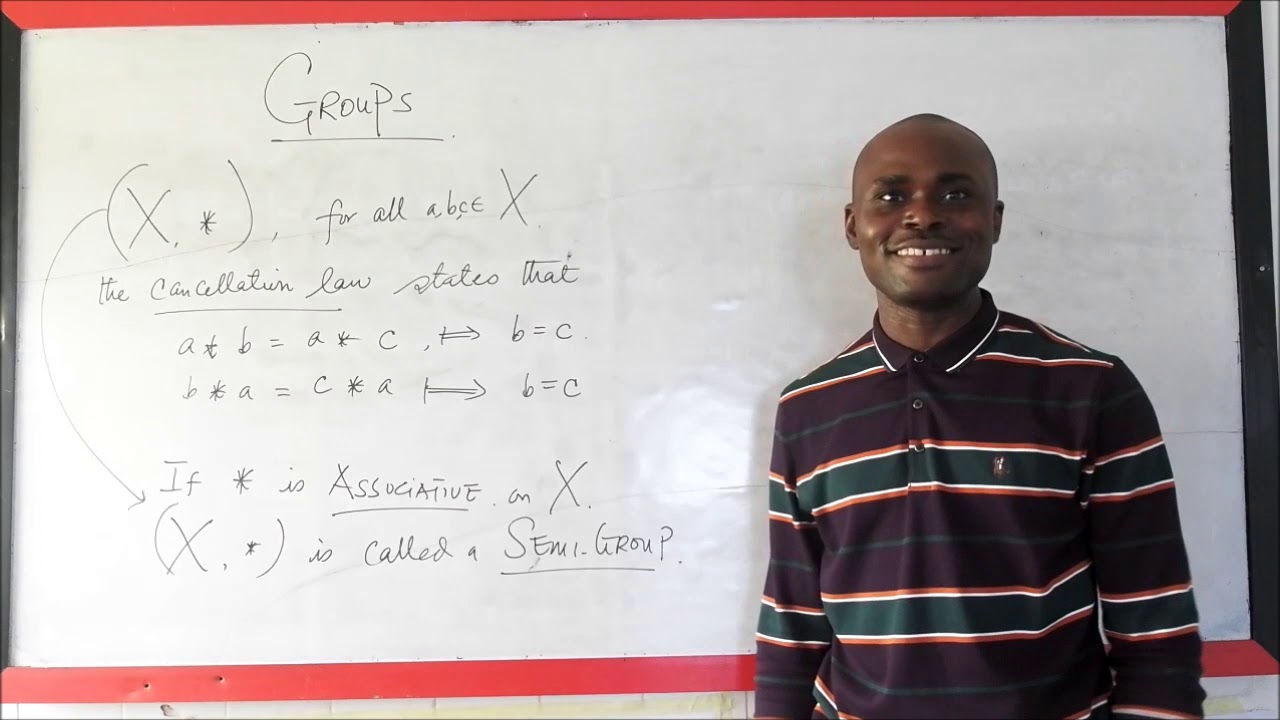 GROUPS
(X, *), for all a,b,c ∈ X.
the cancellation law states that
a * b = a * c, ⟼ b = c.
b * a = c * a ⟼ b = c
If * is ASSOCIATIVE on X.
(X, *) is called a SEMI-GROUP.